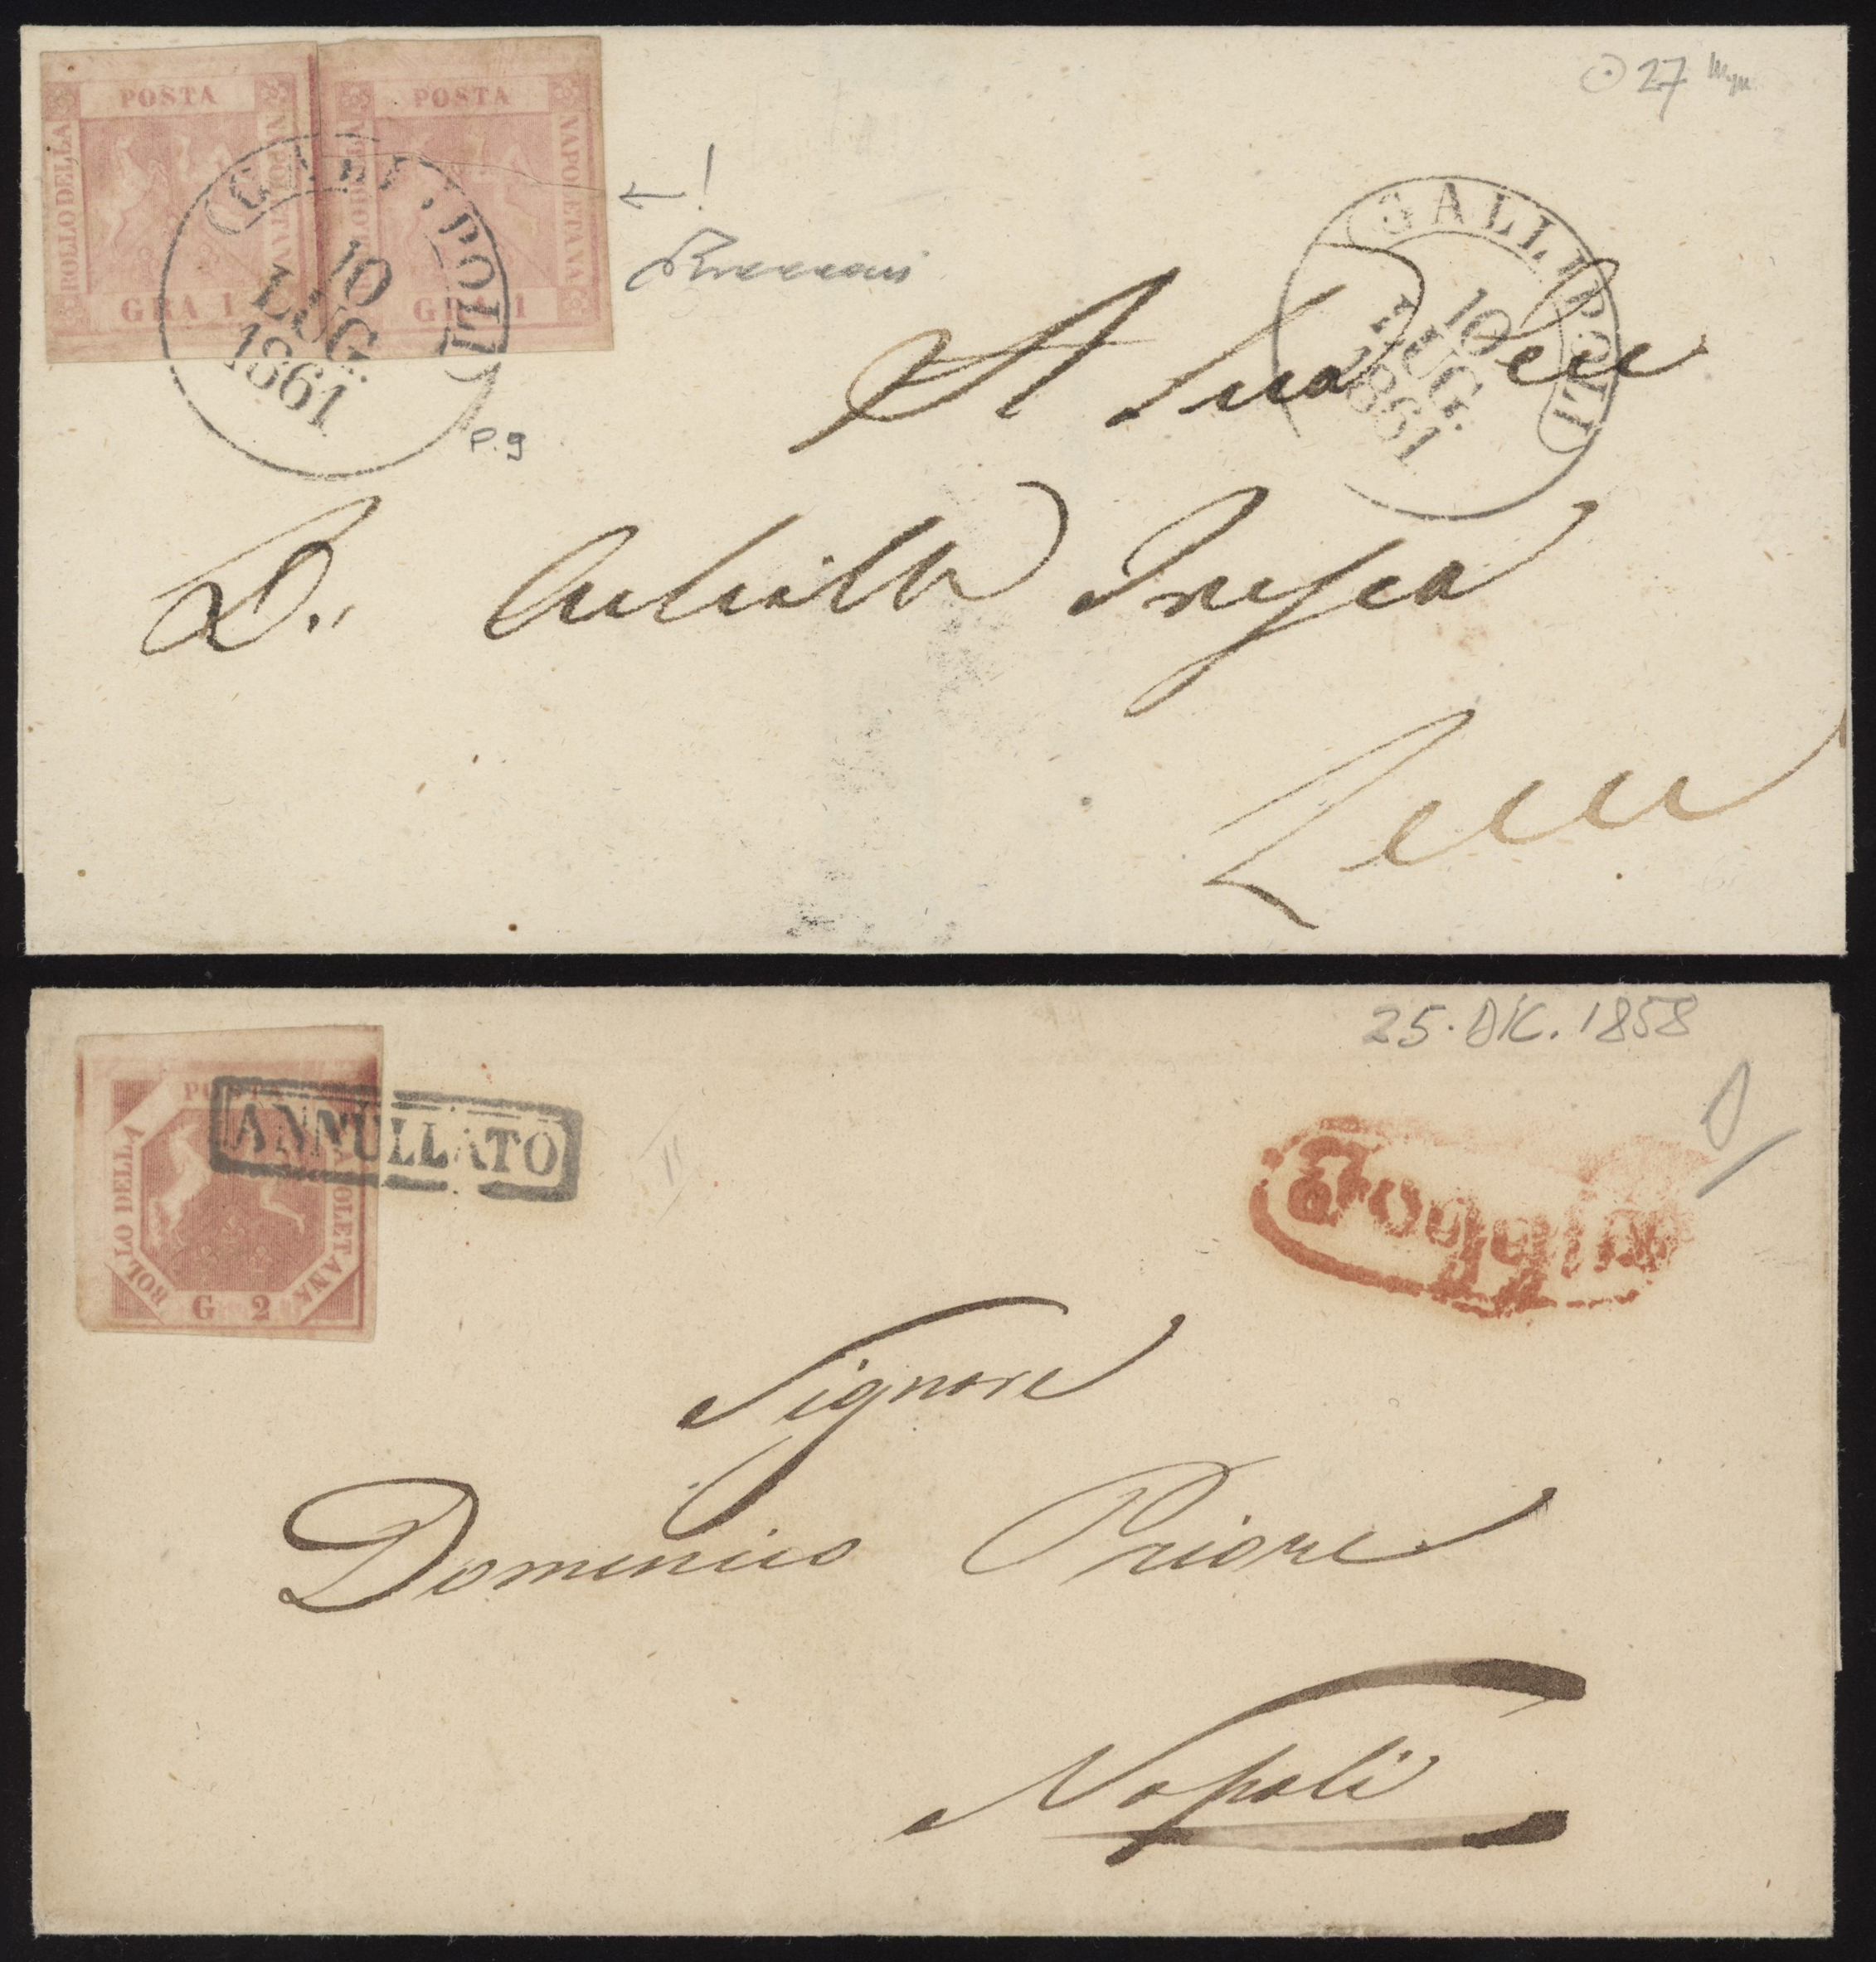 POSTA POSTA
BOLLO DELLA NAPOLETANA BOLLO DELLA NAPOLETANA
GRA 1 GRA 1
GALLIPOLI
10
LUG.
1861
27
!
P. 9
GALLIPOLI
10
LUG.
1861
A Sua Ecc
D.
Lecce
POSTA
BOLLO DELLA NAPOLETANA
G 2
ANNULLATO
25. DIC. 1858
Foggia
Signore
Domenico Priore
Napoli